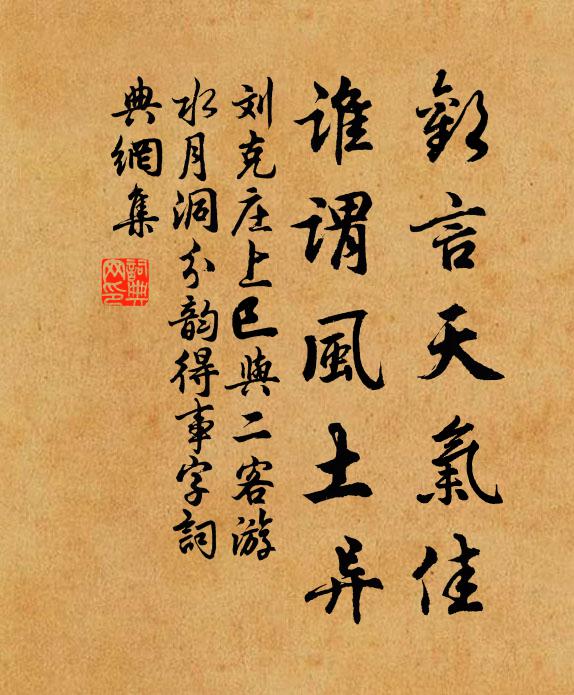 歡言天氣佳
誰謂風土异
刘克庄上巳與二客游
水月洞分韵得事字詞
典網集
詞典网印